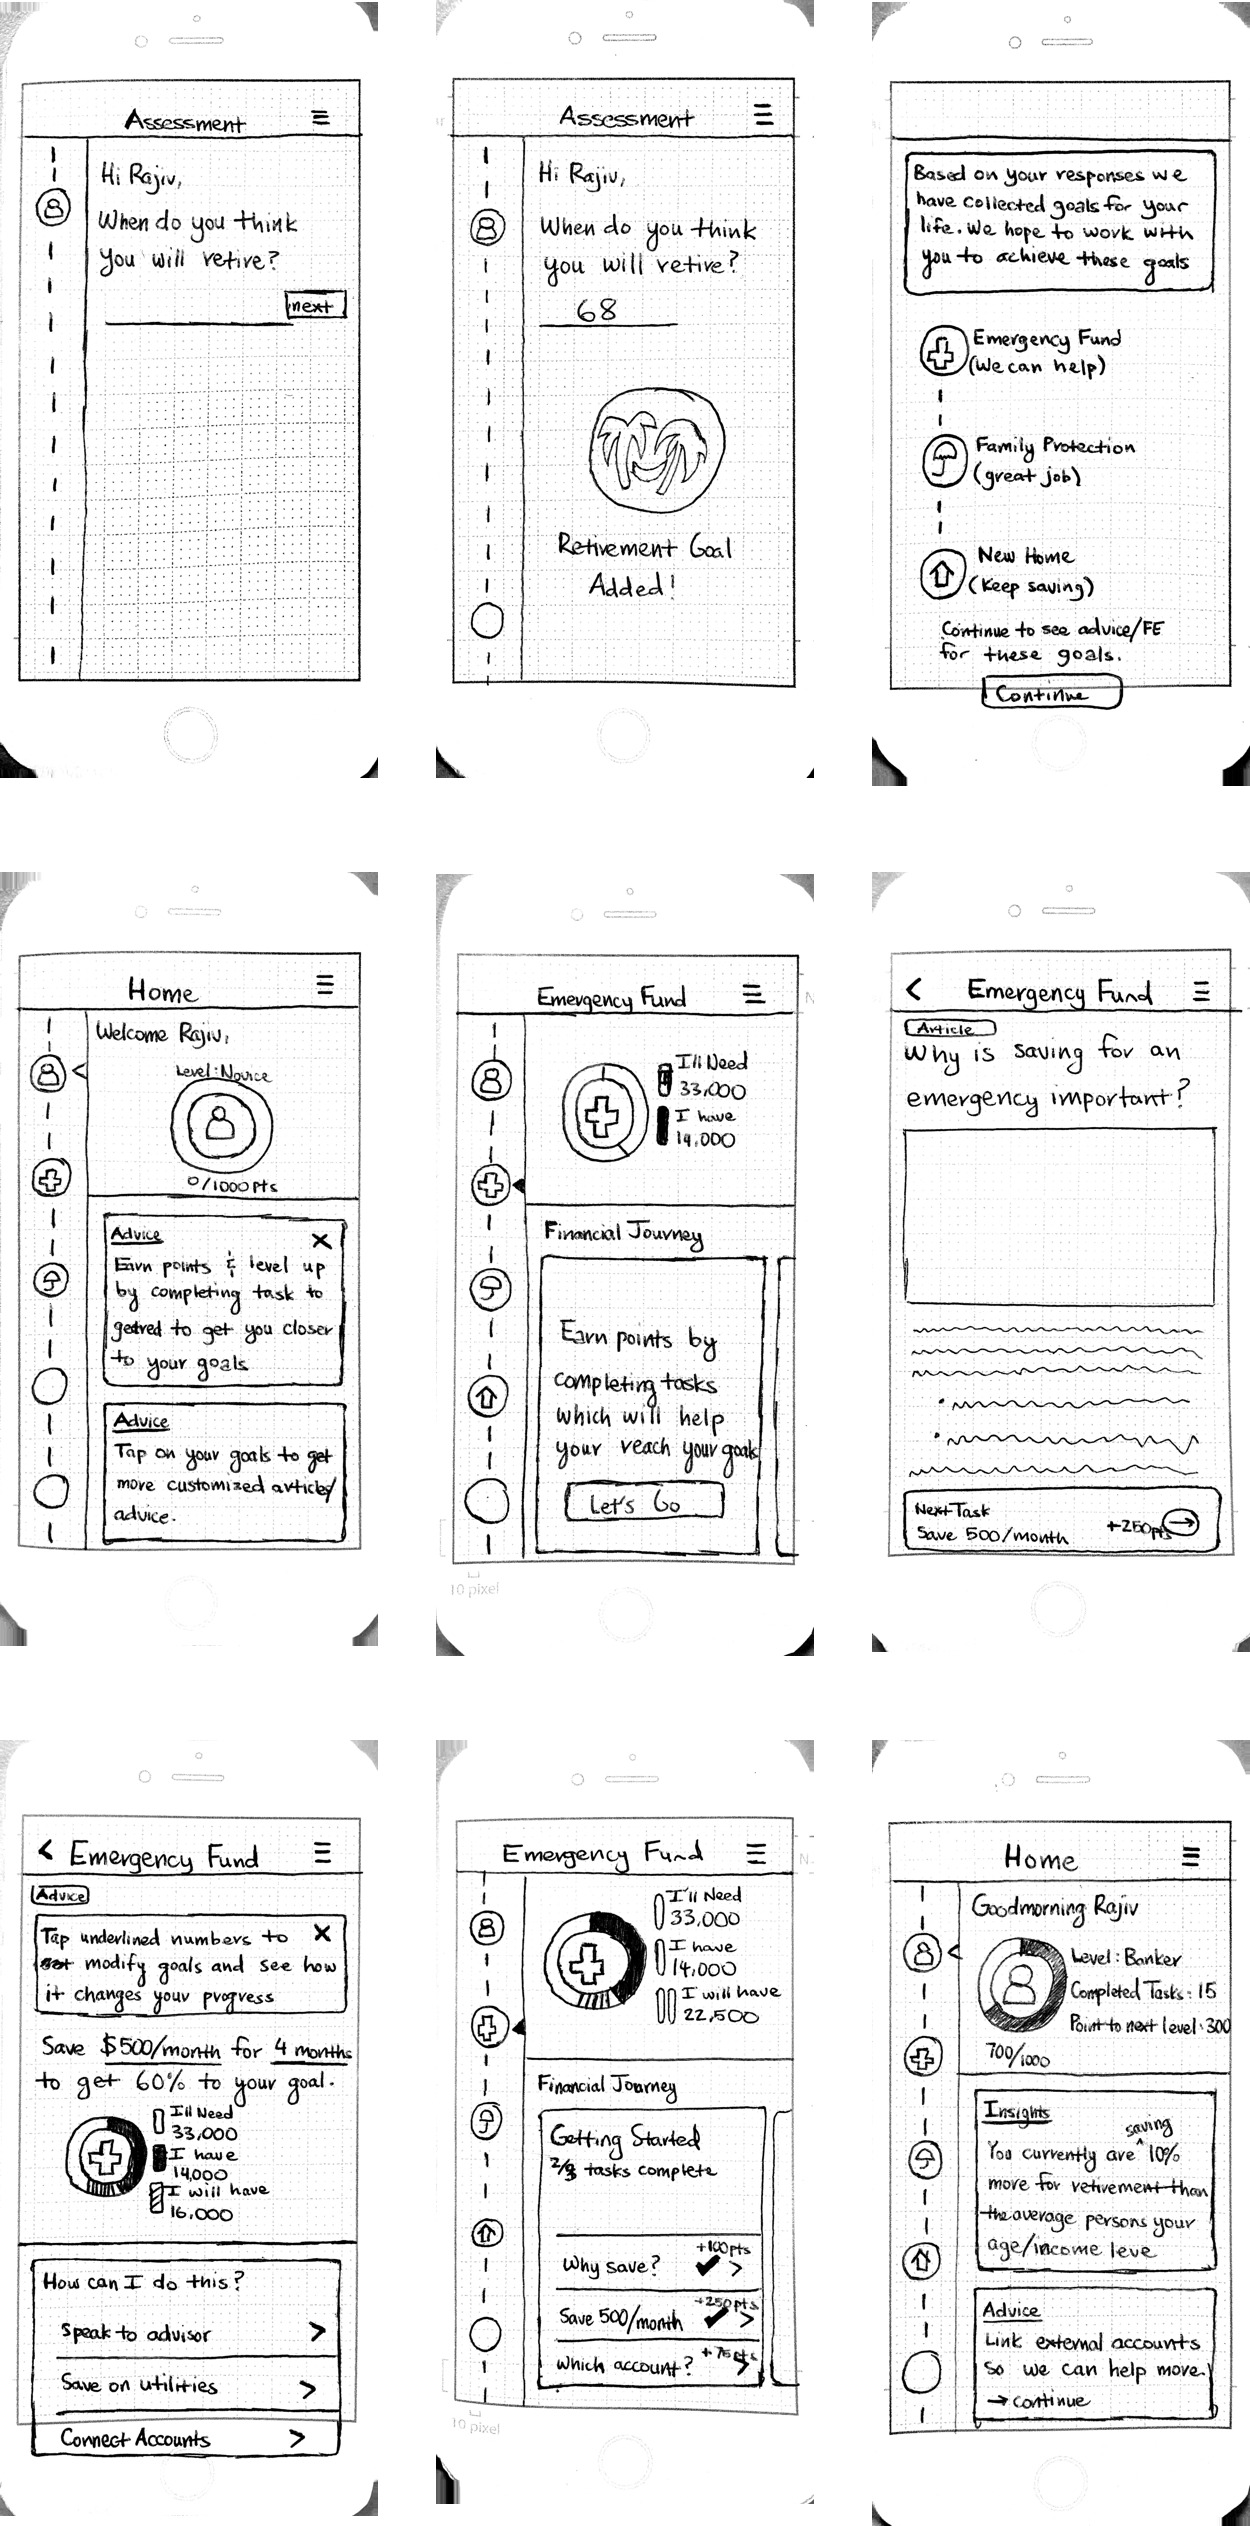 Assessment
Hi Rajiv,
When do you think
you will retire?
next
Assessment
Hi Rajiv,
When do you think
you will retire?
68
Retirement Goal
Added!
Based on your responses we
have collected goals for your
life. We hope to work with
you to achieve these goals
Emergency Fund
(We can help)
Family Protection
(great job)
New Home
(Keep saving)
Continue to see advice/FE
for these goals.
Continue
Home
Welcome Rajiv,
Level: Novice
0/1000 pts
Advice
Earn points & level up
by completing task to
to get you closer
to your goals
Advice
Tap on your goals to get
more customized article/
advice.
Emergency Fund
I'll Need
33,000
I have
14,000
Financial Journey
Earn points by
completing tasks
which will help
your reach your goals
Let's Go
10 pixel
Emergency Fund
Article
Why is saving for an
emergency important?
Next Task
Save 500/month
+250pts
Emergency Fund
Advice
Tap underlined numbers to
modify goals and see how
it changes your progress
Save $500/month for 4 months
to get 60% to your goal.
I'll Need
33,000
I have
14,000
I will have
16,000
How can I do this?
Speak to advisor
Save on utilities
Connect Accounts
Emergency Fund
I'll Need
33,000
I have
14,000
I will have
22,500
Financial Journey
Getting Started
2/3 tasks complete
+100pts
Why save?
+250pts
Save 500/month
+75pts
Which account?
10 pixel
Home
Goodmorning Rajiv
Level: Banker
Completed Tasks: 15
Point to next level: 300
700/1000
Insights
saving
You currently are ^ 10%
more for retirement than
the average persons your
age/income leve
Advice
Link external accounts
So we can help more.
→ continue